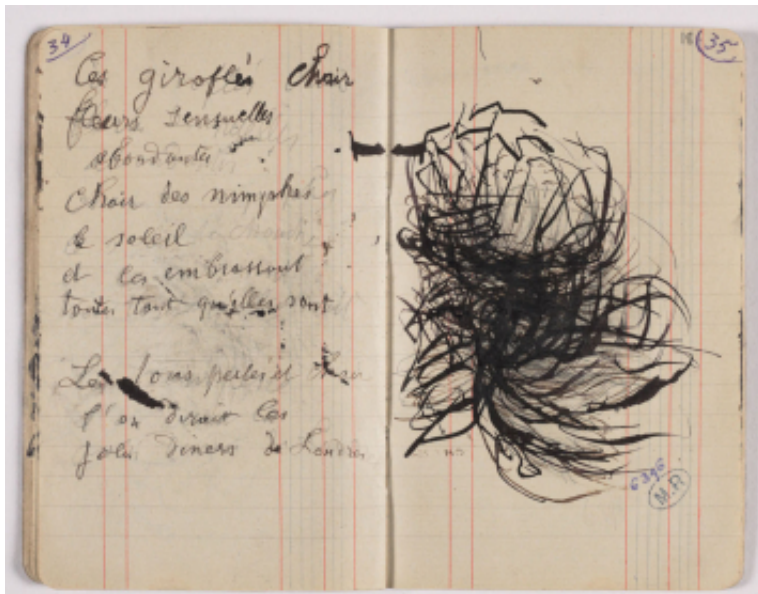 34
Ces giroflés chair
fleurs sensuelles
abondantes
chair des nimphes
le soleil
et les embrassant
toutes tant qu'elles sont
Les tons perlés et
l'on dirait les
jolis diners de Londres
35
6396
M.R